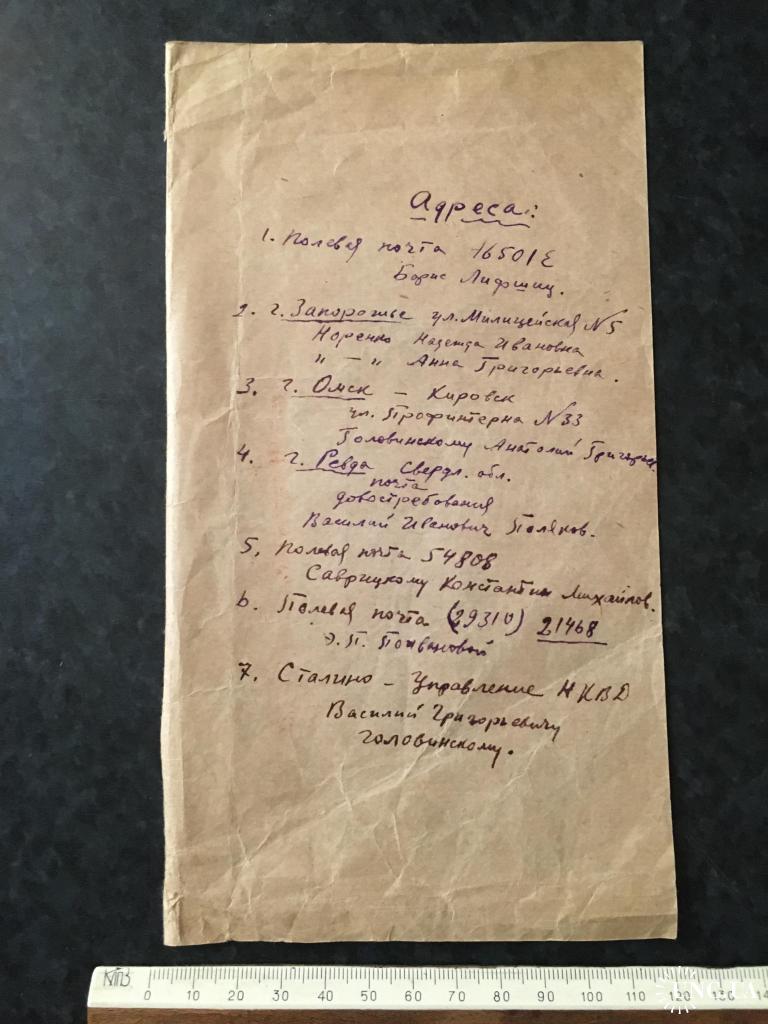 Адреса:
1. Полевая почта 16501Е
Борис Лифшиц.
2. г. Запорожье ул. Милицейская N5
Норенко Надежда Ивановна
" — " Анна Григорьевна.
3. г. Омск – Кировск
ул. Профинтерна N33
Головинскому Анатолий Григорьев.
4. г. Ревда Свердл. обл.
почта
довостребования
Василий Иванович Поляков.
5. Полевая почта 54808
Саврицкому Константин Михайлов.
6. Полевая почта (29310) 21468
Э. П.
7. Сталино – Управление НКВД
Василий Григорьевичу
Головинскому.
0 10 20 30 40 50 60 70 80 90 100 110 120 130 14